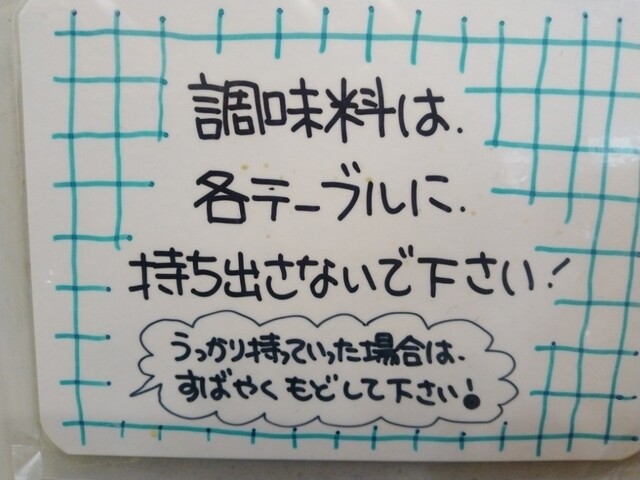 調味料は、
各テーブルに、
持ち出さないで下さい!
うっかり持っていった場合は、
すばやくもどして下さい!